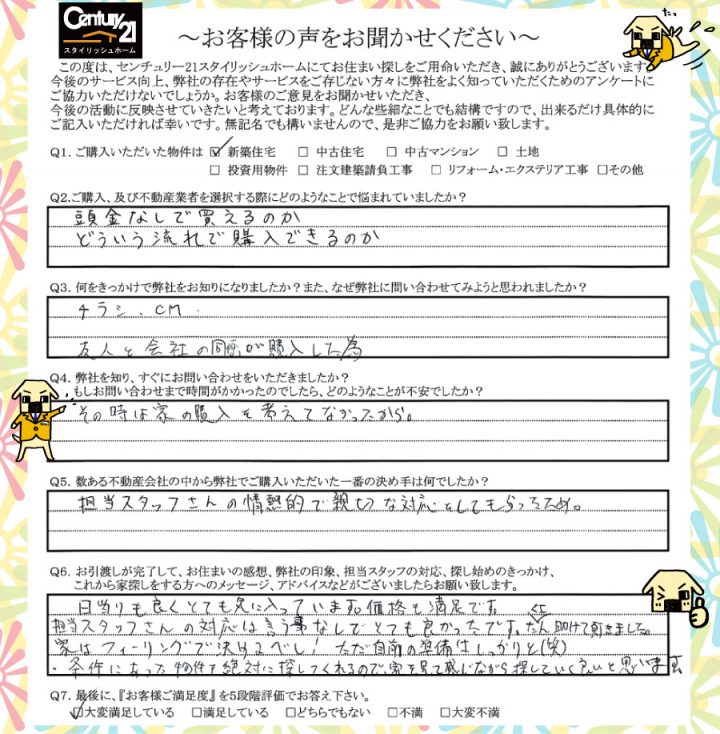 Century 21
スタイリッシュホーム
～お客様の声をお聞かせください～
たっ
この度は、センチュリー21スタイリッシュホームにてお住まい探しをご用命いただき、誠にありがとうございます
今後のサービス向上、弊社の存在やサービスをご存じない方々に弊社をよく知っていただくためのアンケートに
ご協力いただけないでしょうか。お客様のご意見をお聞かせいただき、
今後の活動に反映させていきたいと考えております。どんな些細なことでも結構ですので、出来るだけ具体的に
ご記入いただければ幸いです。無記名でも構いませんので、是非ご協力をお願い致します。
Q1. ご購入いただいた物件は ☑ 新築住宅 □ 中古住宅 □ 中古マンション □ 土地
□ 投資用物件 □ 注文建築請負工事 □ リフォーム・エクステリア工事 □その他
Q2.ご購入、及び不動産業者を選択する際にどのようなことで悩まれていましたか？
頭金なしで買えるのか
どういう流れで購入できるのか
Q3. 何をきっかけで弊社をお知りになりましたか？また、なぜ弊社に問い合わせてみようと思われましたか？
チラシ、CM.
友人と会社の同僚が購入した為
Q4. 弊社を知り、すぐにお問い合わせをいただきましたか？
もしお問い合わせまで時間がかかったのでしたら、どのようなことが不安でしたか？
その時は家の購入を考えてなかったから。
Q5. 数ある不動産会社の中から弊社でご購入いただいた一番の決め手は何でしたか？
担当スタッフさんの情熱的で親切な対応をしてもらったため。
Q6. お引渡しが完了して、お住まいの感想、弊社の印象、担当スタッフの対応、探し始めのきっかけ、
これから家探しをする方へのメッセージ、アドバイスなどがございましたらお願い致します。
日当りも良くとても気に入っています。価格も満足です
担当スタッフさんの対応は言う事なしで とても良かったです。 助けて頂きました。
家はフィーリングで決めるべし！ ただ自前の準備はしっかりと(笑)
・条件にあった物件を絶対に探してくれるので、家を見て感じながら探していく良いと思います
Q7. 最後に、『お客様ご満足度』を5段階評価でお答え下さい。
☑大変満足している □満足している □どちらでもない □不満 □大変不満